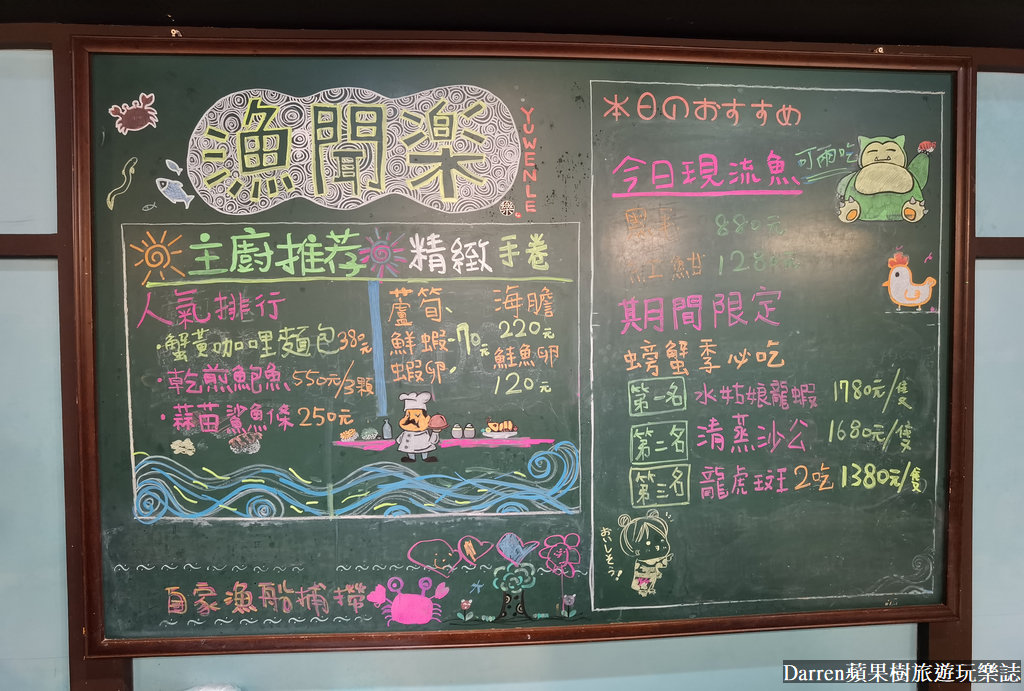 漁聞楽
YUWENLE
樂
主廚推荐 精緻手卷
人氣排行
·蟹黃咖哩麵包380元
·乾煎鮑魚550元/3顆
·蒜苗鯊魚條250元
蘆筍、
鮮蝦
蝦卵
70元
海膽
220元
鮭魚卵
120元
自家漁船捕撈
本日のおすすめ
今日現流魚 可兩吃
880元
期間限定
螃蟹季必吃
第一名 水姑娘龍蝦 1780元/隻
第二名 清蒸沙公 1680元/隻
第三名 龍虎斑2吃 1380元/隻
おいしそう!
Darren蘋果樹旅遊玩樂誌